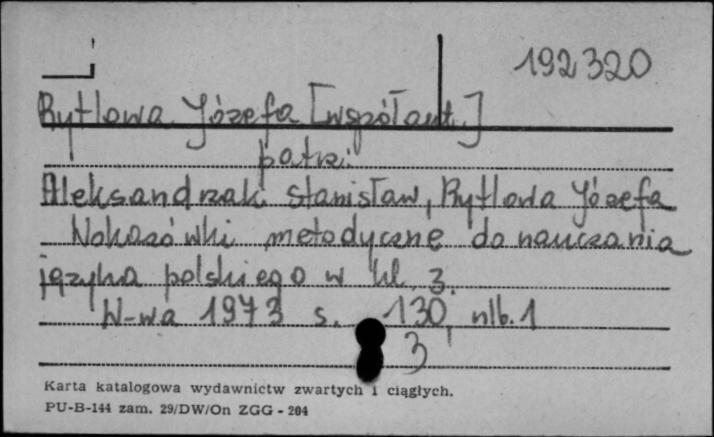 192320
Rytlowa Józefa [współaut.]
patrz:
Aleksandrzak Stanisław, Rytlowa Józefa
Wskazówki metodyczne do nauczania
języka polskiego w kl. 3.
W-wa 1973 s. 130, nlb. 1
3
Karta katalogowa wydawnictw zwartych i ciągłych.
PU-B-144 zam. 29/DW/On ZGG - 204